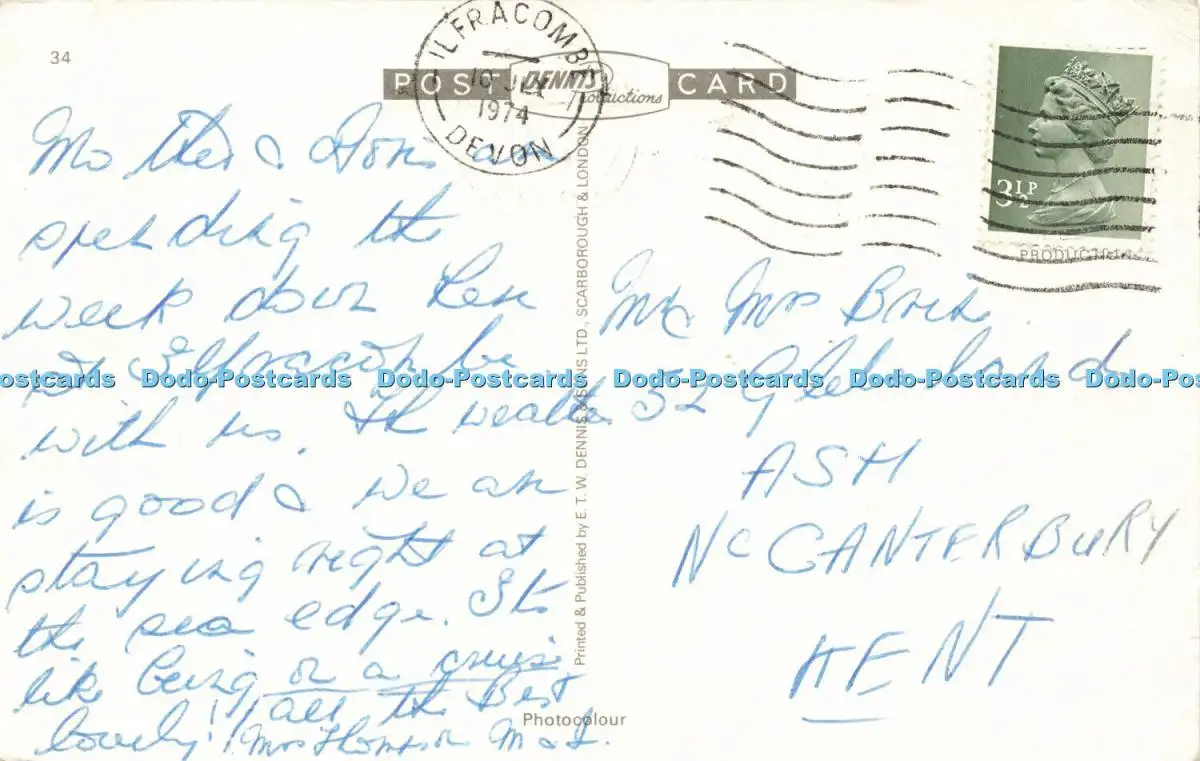 34
ILFRACOMBE
1974
DEVON
POST CARD
DENNIS
Productions
3½P
Mother & Doris are
spending the
week down here
at Ilfracombe
with us. The weather
is good & we are
staying right at
the sea edge. Its
like being on a cruise
lovely! All the Best
Mrs Thompson M &
Printed & Published by E. T. W. DENNIS & SONS LTD., SCARBOROUGH & LONDON
Mr Mrs
52 Glebeland
ASH
Nr CANTERBURY
KENT
Photocolour
Dodo-Postcards Dodo-Postcards Dodo-Postcards Dodo-Postcards Dodo-Postcards